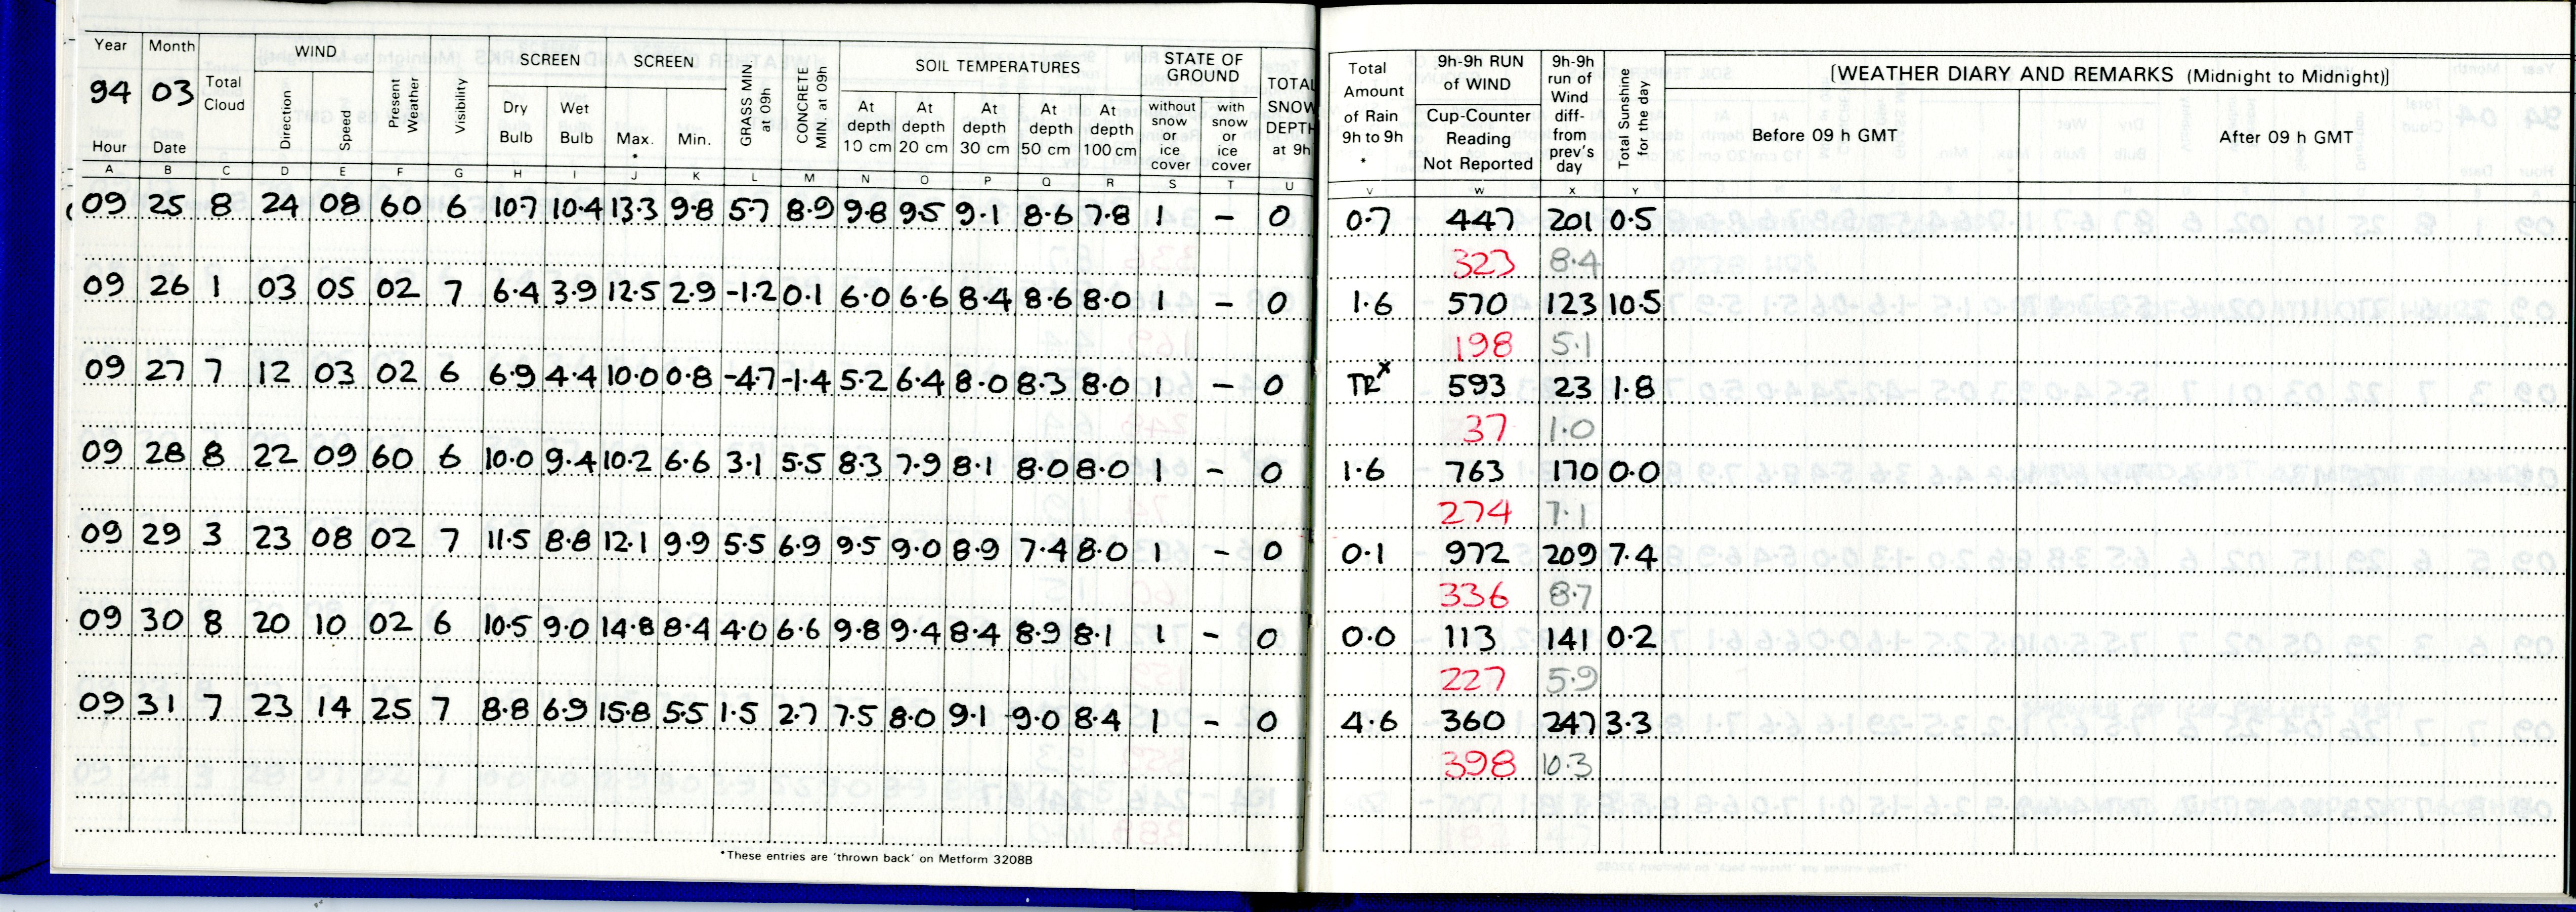 Year Month WIND SCREEN SCREEN SOIL TEMPERATURES STATE OF GROUND
94 03 Total Cloud Direction Speed Present Weather Visibility Dry Bulb Wet Bulb Max. * Min. GRASS MIN at 09h CONCRETE MIN at 09h At depth 10 cm At depth 20 cm At depth 30 cm At depth 50 cm At depth 100 cm without snow or ice cover with snow or ice cover TOTAL SNOW DEPTH at 9h
Hour Date
A B C D E F G H I J K L M N O P Q R S T U
09 25 8 24 08 60 6 10.7 10.4 13.3 9.8 5.7 8.9 9.8 9.5 9.1 8.6 7.8 1 – 0
09 26 1 03 05 02 7 6.4 3.9 12.5 2.9 -1.2 0.1 6.0 6.6 8.4 8.6 8.0 1 – 0
09 27 7 12 03 02 6 6.9 4.4 10.0 0.8 -4.7 -1.4 5.2 6.4 8.0 8.3 8.0 1 – 0
09 28 8 22 09 60 6 10.0 9.4 10.2 6.6 3.1 5.5 8.3 7.9 8.1 8.0 8.0 1 – 0
09 29 3 23 08 02 7 11.5 8.8 12.1 9.9 5.5 6.9 9.5 9.0 8.9 7.4 8.0 1 – 0
09 30 8 20 10 02 6 10.5 9.0 14.8 8.4 4.0 6.6 9.8 9.4 8.4 8.9 8.1 1 – 0
09 31 7 23 14 25 7 8.8 6.9 15.8 5.5 1.5 2.7 7.5 8.0 9.1 9.0 8.4 1 – 0
*These entries are 'thrown back' on Metform 3208B
Total Amount of Rain 9h to 9h * 9h-9h RUN of WIND Cup-Counter Reading Not Reported 9h-9h run of Wind diff- from prev's day Total Sunshine for the day [WEATHER DIARY AND REMARKS (Midnight to Midnight)]
Before 09 h GMT After 09 h GMT
V W X Y
0.7 447 201 0.5
323 8.4
1.6 570 123 10.5
198 5.1
TR x 593 23 1.8
37 1.0
1.6 763 170 0.0
274 7.1
0.1 972 209 7.4
336 8.7
0.0 113 141 0.2
227 5.9
4.6 360 247 3.3
398 10.3